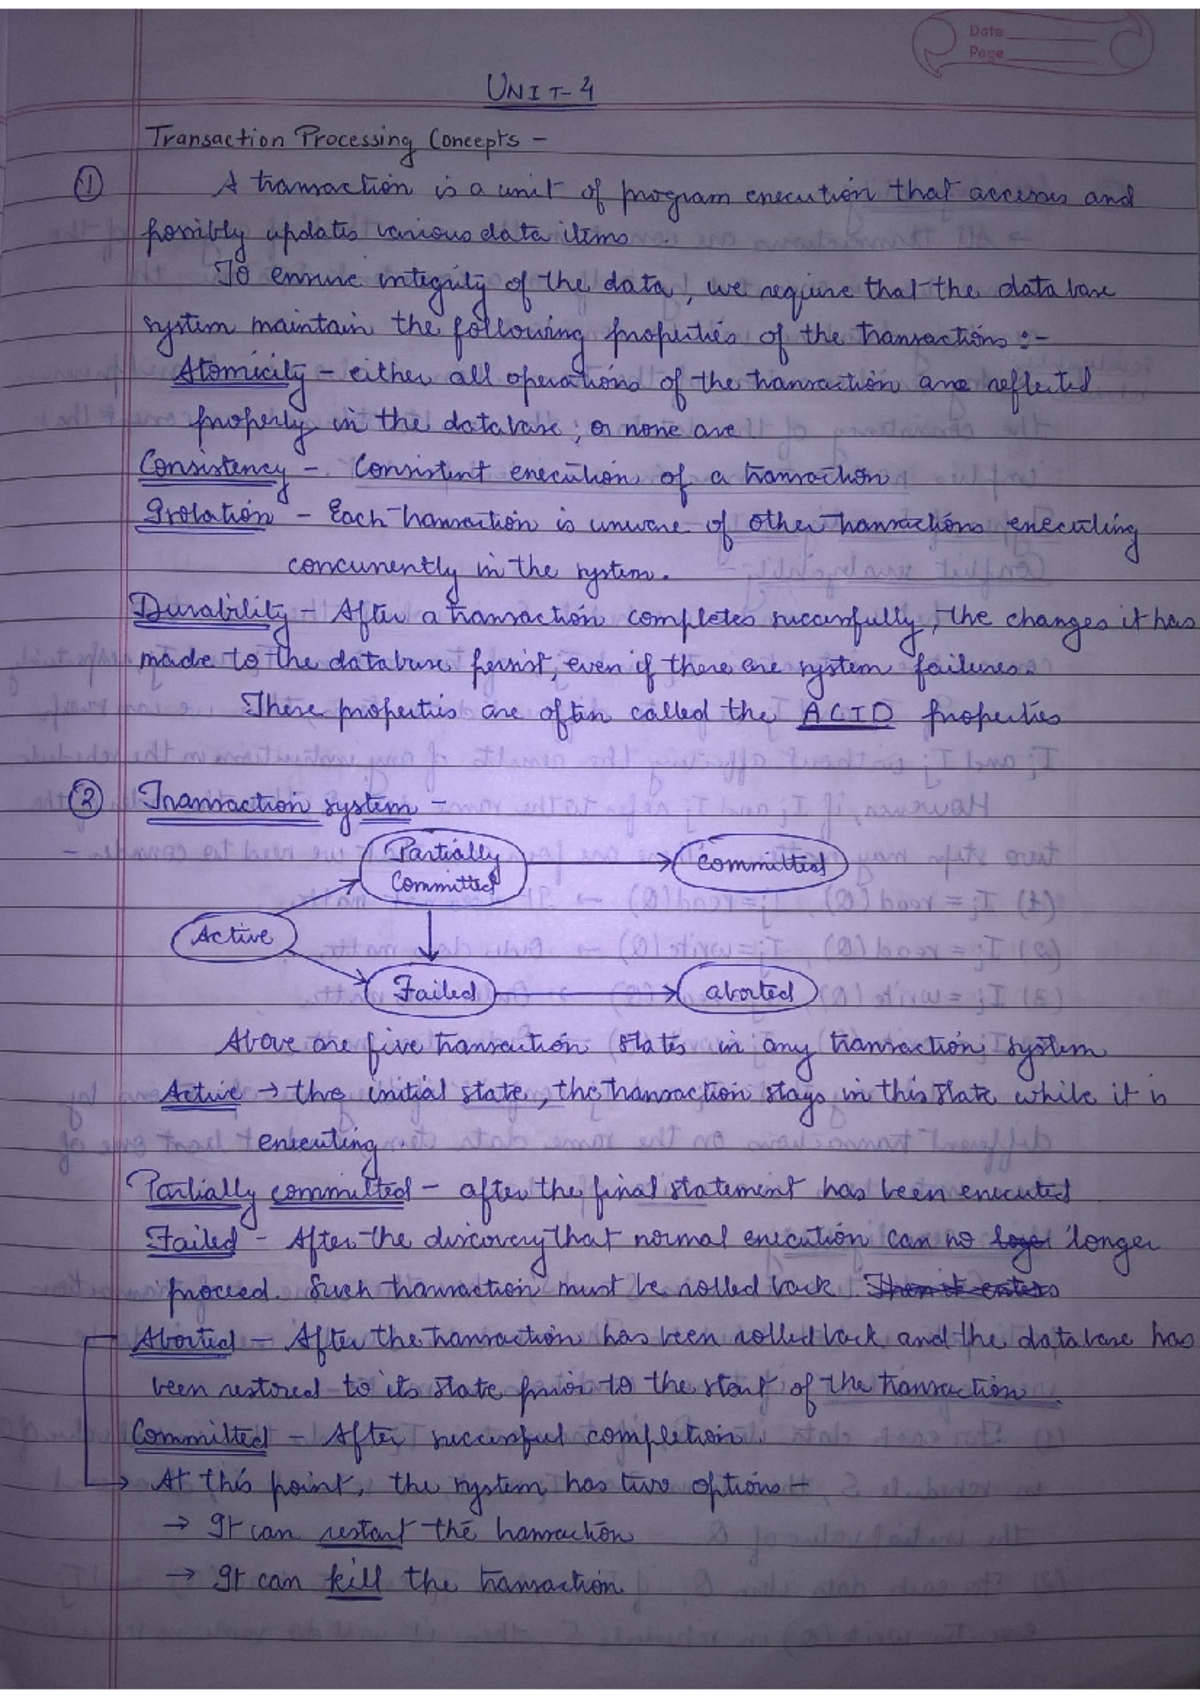 Date
Page
UNIT-4
Transaction Processing Concepts -
① A transaction is a unit of program execution that accesses and
possibly updates various data items.
To ensure integrity of the data, we require that the database
system maintain the following properties of the transactions :-
Atomicity - either all operations of the transaction are reflected
properly in the database, or none are
Consistency - Consistent execution of a transaction
Isolation - Each transaction is unware of other transactions executing
concurrently in the system.
Durability - After a transaction completes successfully, the changes it has
made to the database persist, even if there are system failures.
These properties are often called the ACID properties
② Transaction system -
Partially
Committed
Committed
Active
Failed
aborted
Above are five transaction states in any transaction system
Active → the initial state, the transaction stays in this state while it is
executing.
Partially committed - after the final statement has been executed
Failed - After the discovery that normal execution can no loger longer
proceed. Such transaction must be rolled back. Then it enters
Aborted - After the transaction has been rolled back and the database has
been restored to its state prior to the start of the transaction.
Committed - After successful completion
→ At this point, the system has two options -
→ It can restart the transaction
→ It can kill the transaction